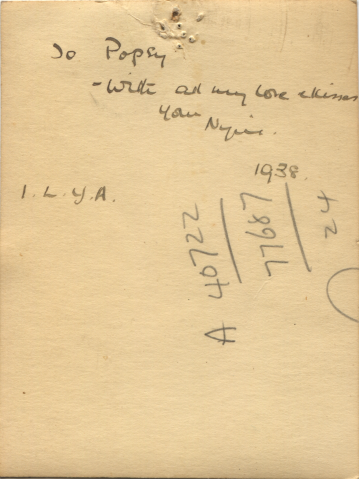 To Popsy
-With all my love & kisses
your
1938.
I. L. Y. A.
A 40722
77687
24